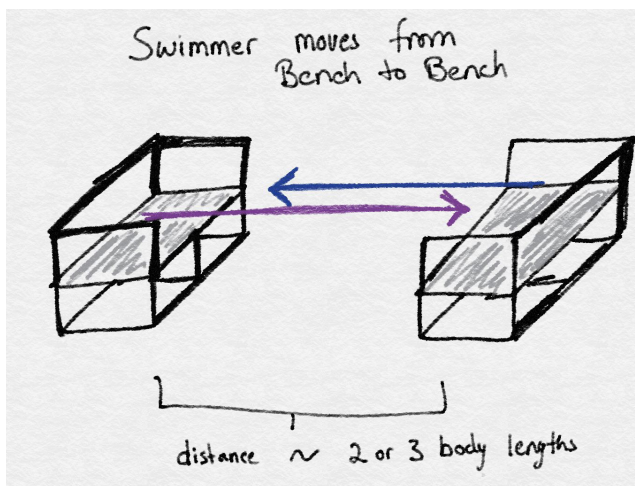 Swimmer moves from
Bench to Bench
distance ~ 2 or 3 body lengths